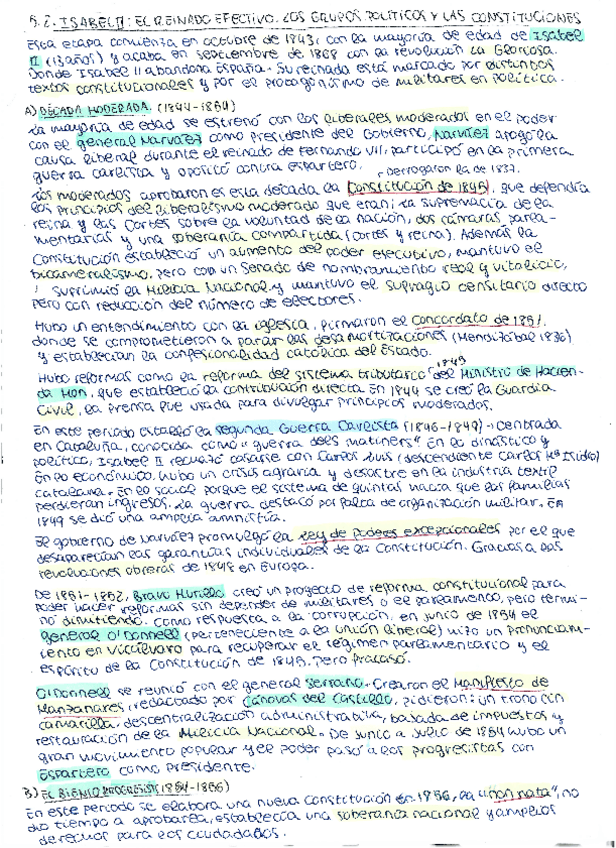 5.2. ISABEL II: EL REINADO EFECTIVO. LOS GRUPOS POLÍTICOS Y LAS CONSTITUCIONES
Esta etapa comienza en octubre de 1843, con la mayoría de edad de Isabel
II (13años) y acaba en septiembre de 1868 con la revolución La Gloriosa.
Donde Isabel II abandona España. Su reinado está marcado por distintos
textos constitucionales y por el protagonismo de militares en política.
A) DÉCADA MODERADA. (1844-1854)
La mayoría de edad se estrenó con los liberales moderados en el poder
con el general Narváez como presidente del Gobierno, Narváez apoyó la
causa liberal durante el reinado de Fernando VII, participó en la primera
guerra carlista y opositó contra Espartero.
Derrogaron la de 1837.
Los moderados aprobaron es esta década la Constitución de 1845, que defendía
los principios del liberalismo moderado que eran: la supremacía de la
reina y las Cortes sobre la voluntad de la nación, dos cámaras parla-
mentarias y una soberanía compartida (Cortes y reina). Además la
Constitución estableció un aumento del poder ejecutivo, mantuvo el
bicameralismo, pero con un Senado de nombramiento real y vitalicio,
suprimió la Milicia Nacional y mantuvo el sufragio censitario directo
pero con reducción del número de electores.
Hubo un entendimiento con la iglesia, firmaron el Concordato de 1851,
donde se comprometieron a parar las desamortizaciones (Mendizábal 1836)
y establecían la confesionalidad católica del Estado.
1845
Hubo reformas como la reforma del sistema tributario del Ministro de Hacien-
da Mon, que estableció la contribución directa. En 1844 se creó la Guardia
Civil, la prensa fue usada para divulgar principios moderados.
En este periodo estalló la segunda Guerra Carlista (1846-1849), centrada
en Cataluña, conocida como "guerra dels matiners". En lo dinástico y
político, Isabel II rechazó casarse con Carlos Luis (descendiente Carlos Mª Isidro)
En lo económico, hubo un crisis agraria y desastre en la industria textil
catalana. En lo social porque el sistema de quintas hacía que las familias
perdieran ingresos. La guerra destacó por falta de organización militar. En
1849 se dió una amplia amnistía.
El gobierno de Narváez promulgó la Ley de Poderes excepcionales por el que
desaparecían las garantías individuales de la Constitución. Gracias a las
revoluciones obreras de 1848 en Europa.
De 1851-1852, Bravo Murillo creó un proyecto de reforma constitucional para
poder hacer reformas sin depender de militares o el parlamento, pero termi-
nó dimitiendo. Como respuesta a la corrupción, en junio de 1854 el
general O'Donnell (perteneciente a la Unión liberal) hizo un pronunciam-
iento en Vicálvaro para recuperar el régimen parlamentario y el
espíritu de la Constitución de 1845, pero fracasó.
O'Donnell se reunió con el general Serrano. Crearon el Manifiesto de
Manzanares, redactado por Cánovas del Castillo, pidieron: un trono sin
camarilla, descentralización administrativa, bajada de impuestos y
restauración de la Milicia Nacional. De junio a julio de 1854 hubo un
gran movimiento popular y el poder pasó a los progresistas con
Espartero como presidente.
B) EL BIENIO PROGRESISTA (1854-1856)
En este periodo se elabora una nueva Constitución en 1856, la "non nata", no
dio tiempo a aprobarla, establecía una soberanía nacional y amplios
derechos para los ciudadanos.